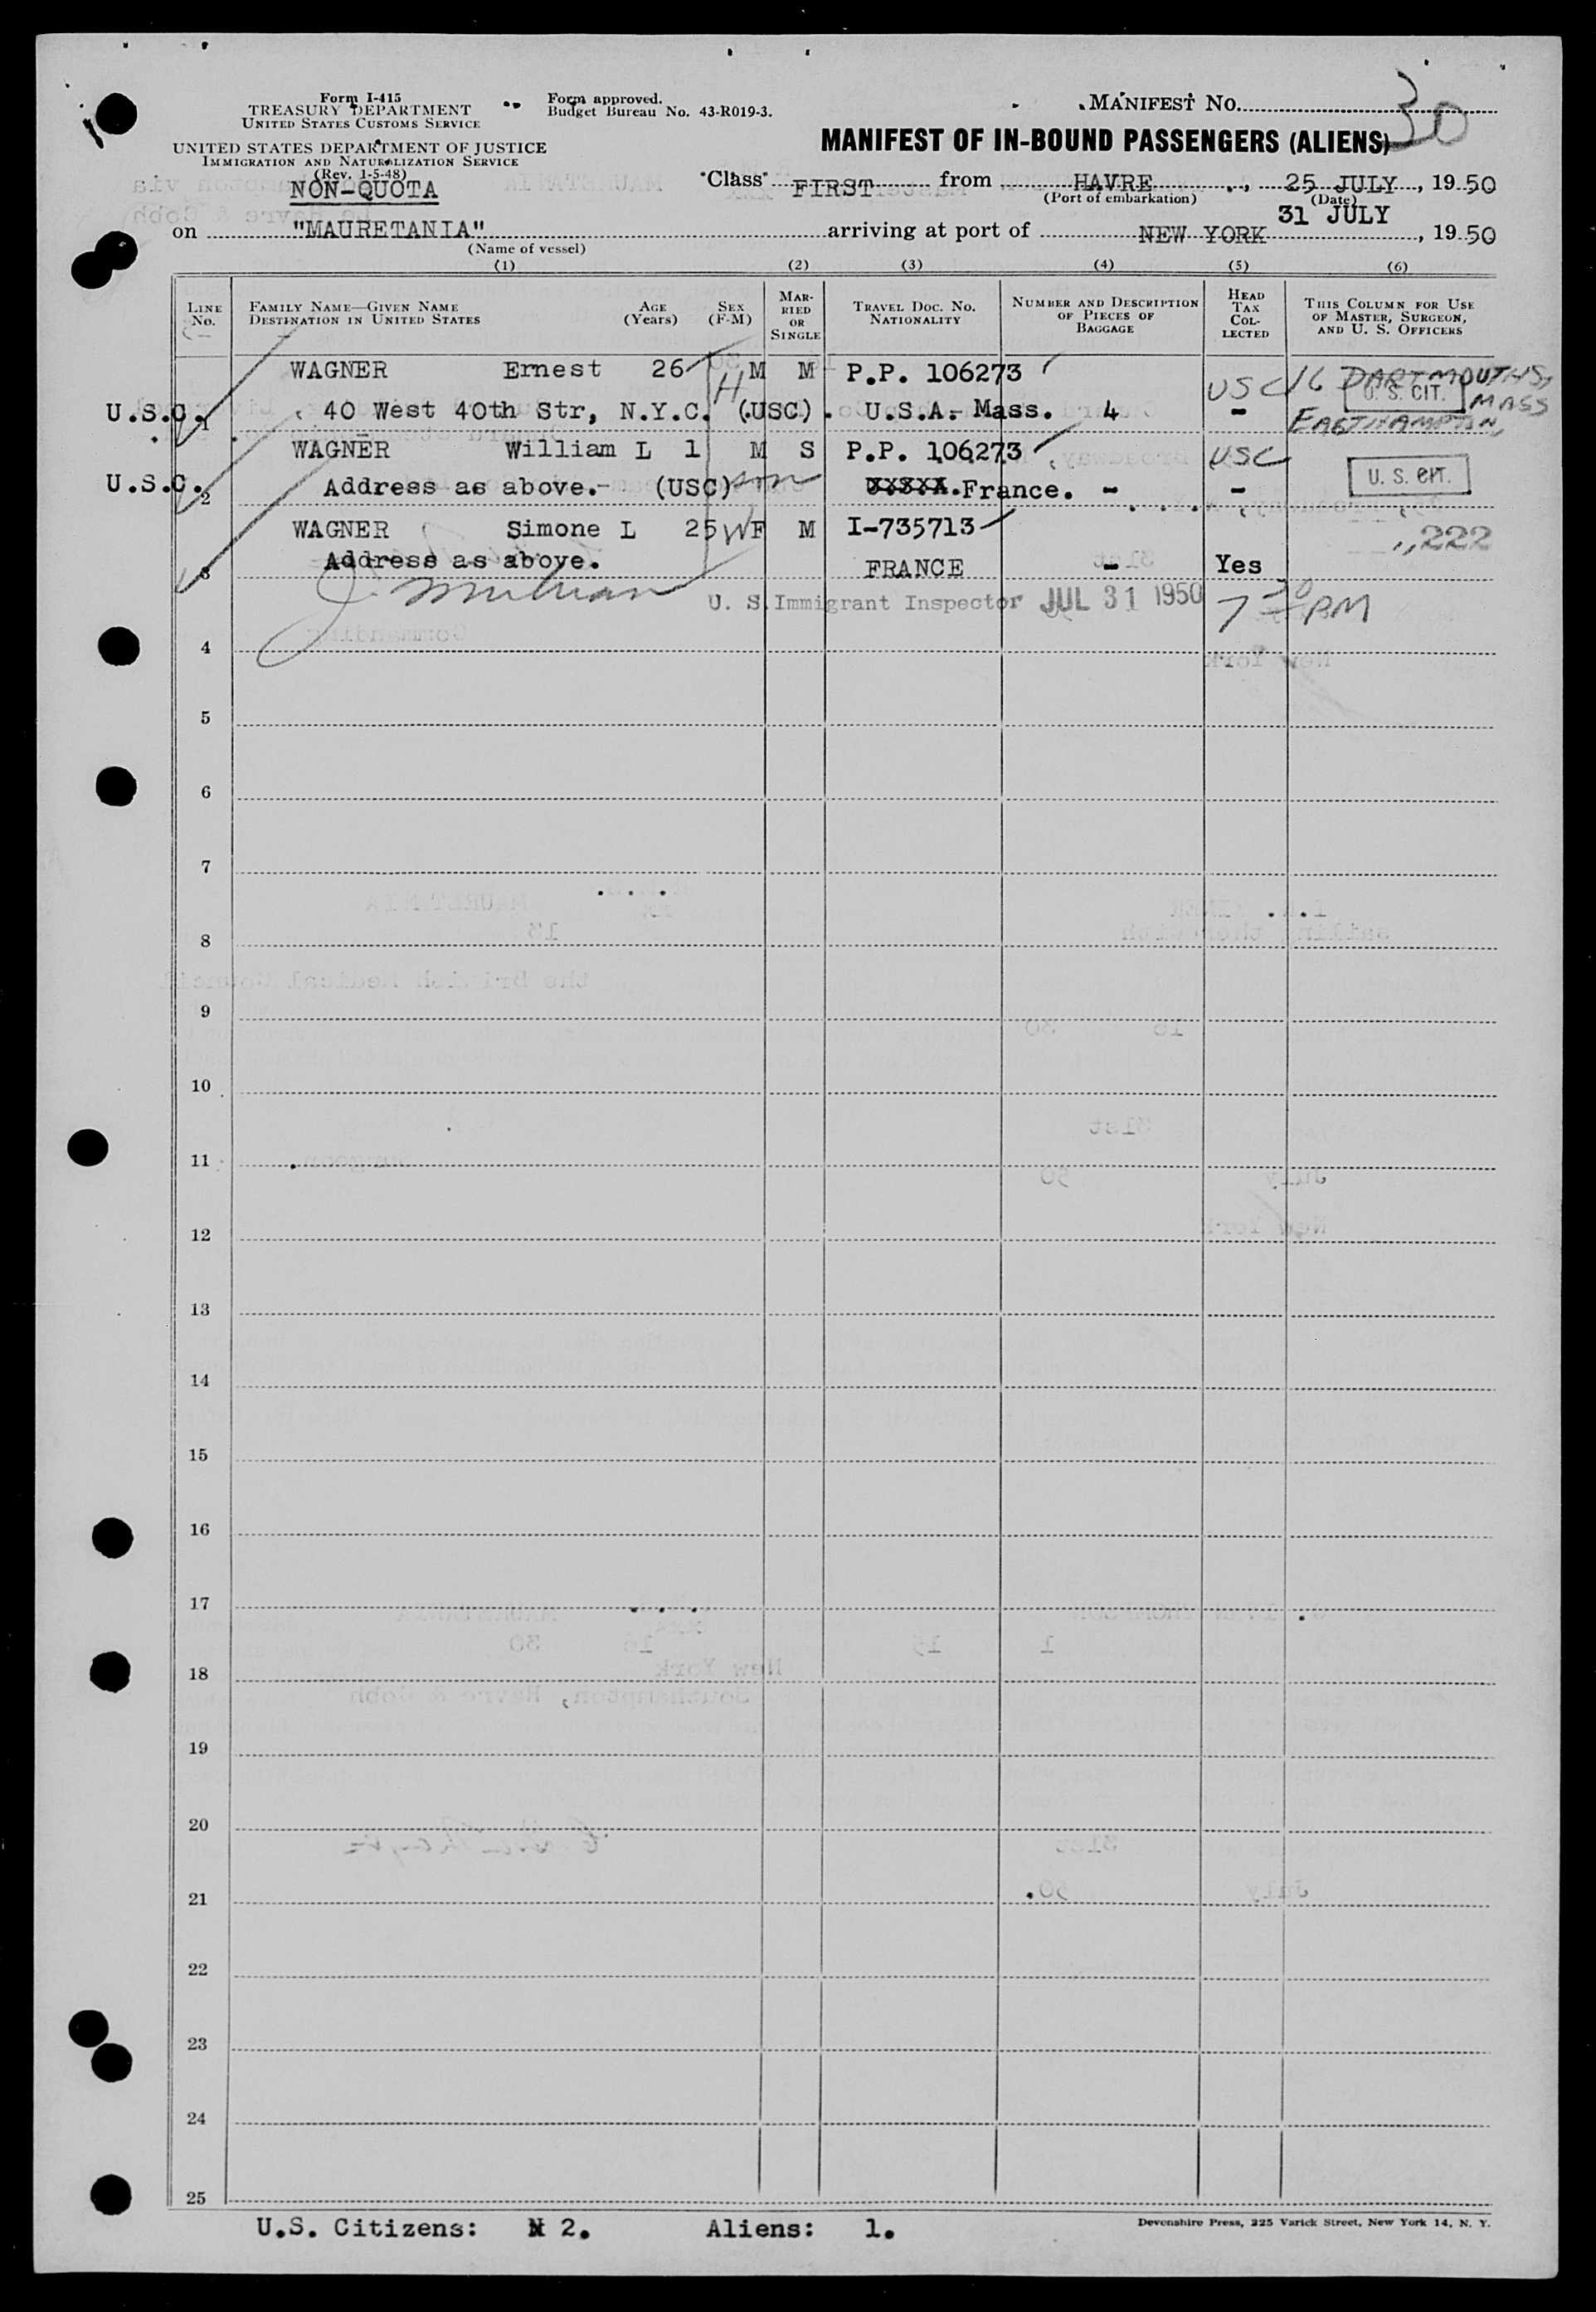 Form I-415
TREASURY DEPARTMENT
UNITED STATES CUSTOMS SERVICE
UNITED STATES DEPARTMENT OF JUSTICE
IMMIGRATION AND NATURALIZATION SERVICE
(Rev. 1-5-48)
NON-QUOTA
Form approved.
Budget Bureau No. 43-R019-3.
MANIFEST No. 30
MANIFEST OF IN-BOUND PASSENGERS (ALIENS)
Class FIRST from HAVRE, 25 JULY, 19 50
(Port of embarkation) (Date)
on "MAURETANIA" arriving at port of NEW YORK 31 JULY, 19 50
(Name of vessel)
(1) (2) (3) (4) (5) (6)
LINE No. FAMILY NAME—GIVEN NAME DESTINATION IN UNITED STATES AGE (Years) SEX (F-M) MARRIED OR SINGLE TRAVEL DOC. NO. NATIONALITY NUMBER AND DESCRIPTION OF PIECES OF BAGGAGE HEAD TAX COLLECTED THIS COLUMN FOR USE OF MASTER, SURGEON, AND U. S. OFFICERS
WAGNER Ernest 26 H M M P.P. 106273 USC 16 DARTMOUTH S,
U.S.C. 1 40 West 40th Str, N.Y.C. (USC). U.S.A. Mass. 4 - U. S. CIT. MASS
EASTHAMPTON,
WAGNER William L 1 M S P.P. 106273 USC
U.S.C. 2 Address as above.- (USC) son U.S.A. France. - - U. S. CIT.
WAGNER Simone L 25 W F M I-735713 222
3 Address as above. FRANCE - Yes
U. S. Immigrant Inspector JUL 31 1950 7 30 PM
4
5
6
7
8
9
10
11
12
13
14
15
16
17
18
19
20
21
22
23
24
25
U.S. Citizens: 2. Aliens: 1.
Devonshire Press, 225 Varick Street, New York 14, N. Y.